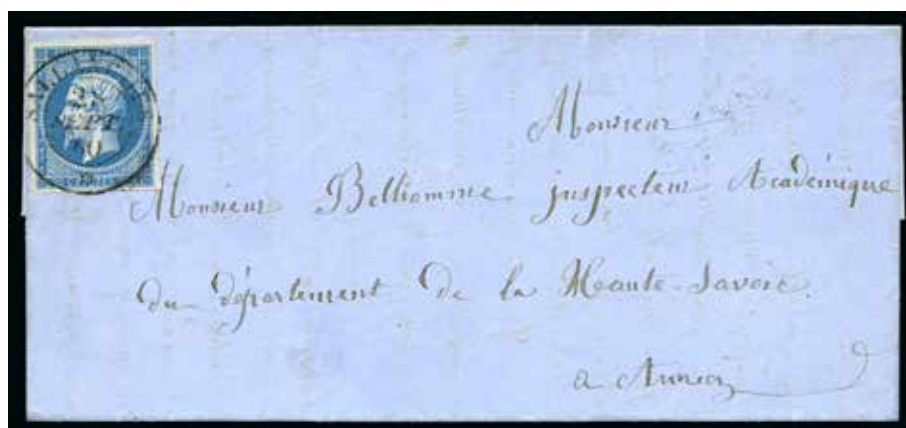 28
SEPT
60
Monsieur
Monsieur Belhomme inspecteur Académique
du département de la Haute-Savoie
a Annecy